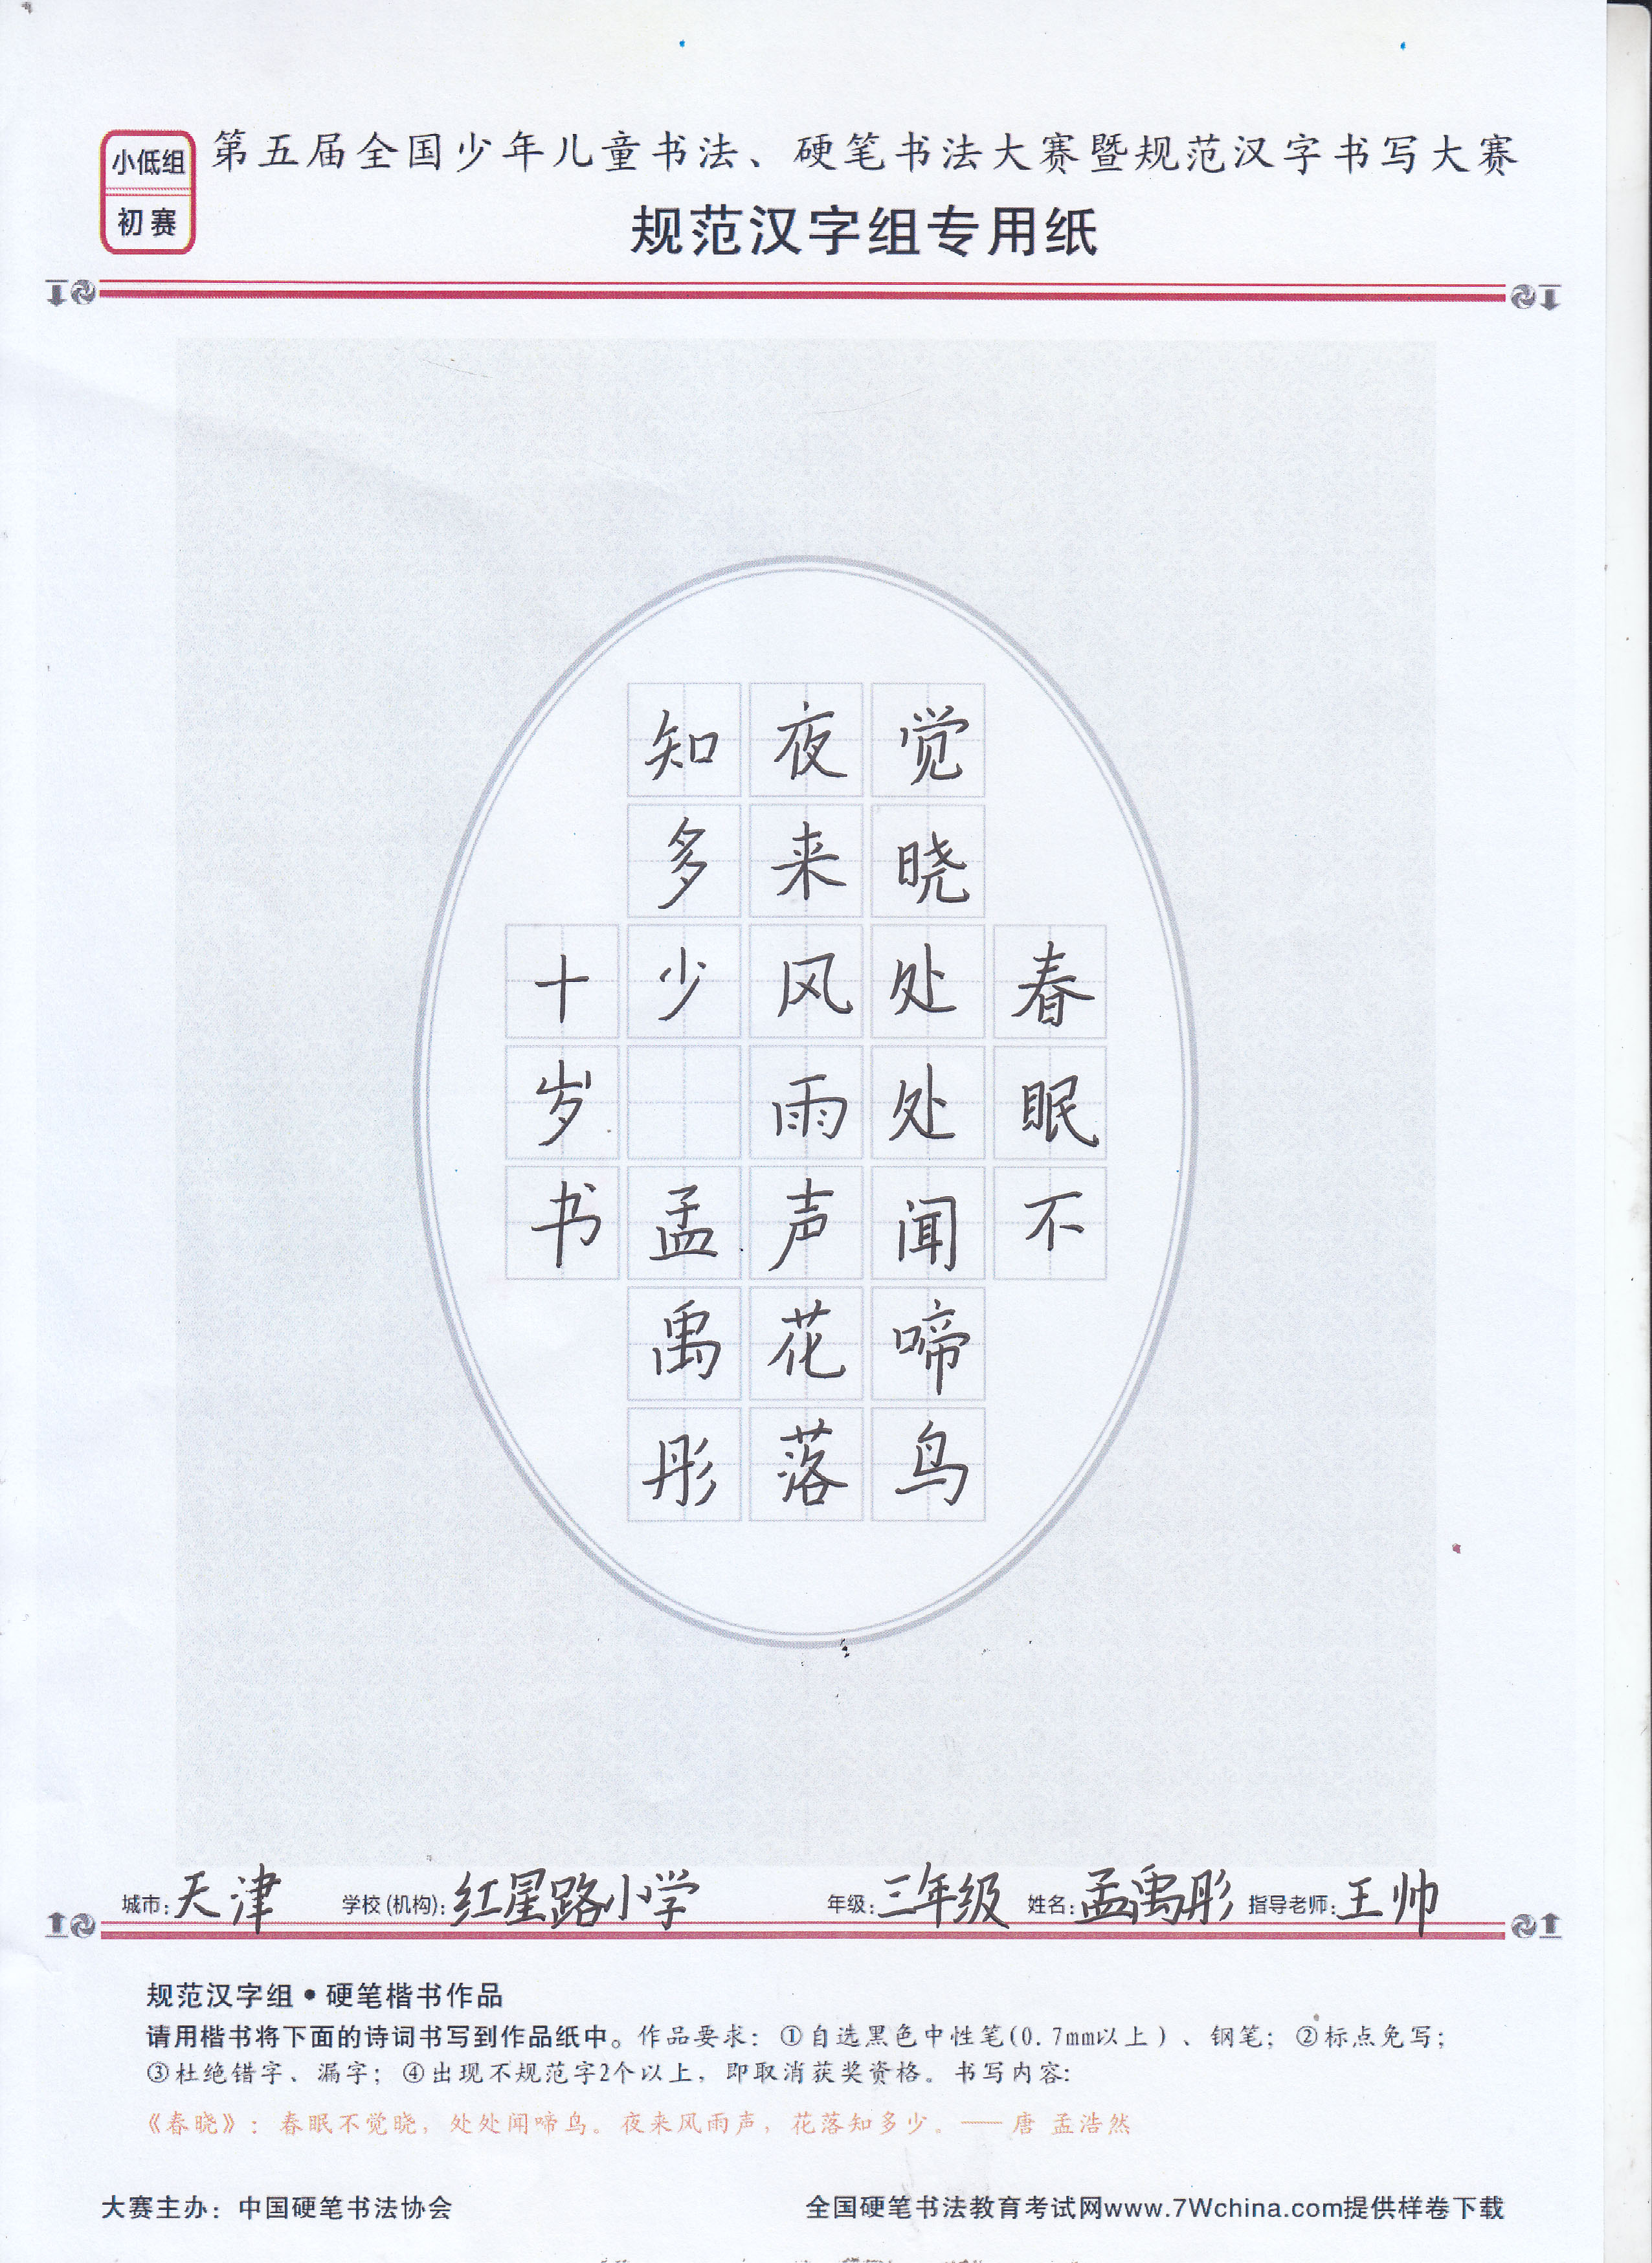 小低组
初赛
第五届全国少年儿童书法、硬笔书法大赛暨规范汉字书写大赛
规范汉字组专用纸
春眠不
觉晓处处闻啼鸟
夜来风雨声花落
知多少 孟禹彤
十岁书
城市:天津 学校(机构):红星路小学 年级:三年级 姓名:孟禹彤 指导老师:王帅
规范汉字组•硬笔楷书作品
请用楷书将下面的诗词书写到作品纸中。作品要求:①自选黑色中性笔(0.7mm以上)、钢笔;②标点免写;
③杜绝错字、漏字;④出现不规范字2个以上,即取消获奖资格。书写内容:
《春晓》:春眠不觉晓,处处闻啼鸟。夜来风雨声,花落知多少。——唐 孟浩然
大赛主办:中国硬笔书法协会 全国硬笔书法教育考试网www.7Wchina.com提供样卷下载